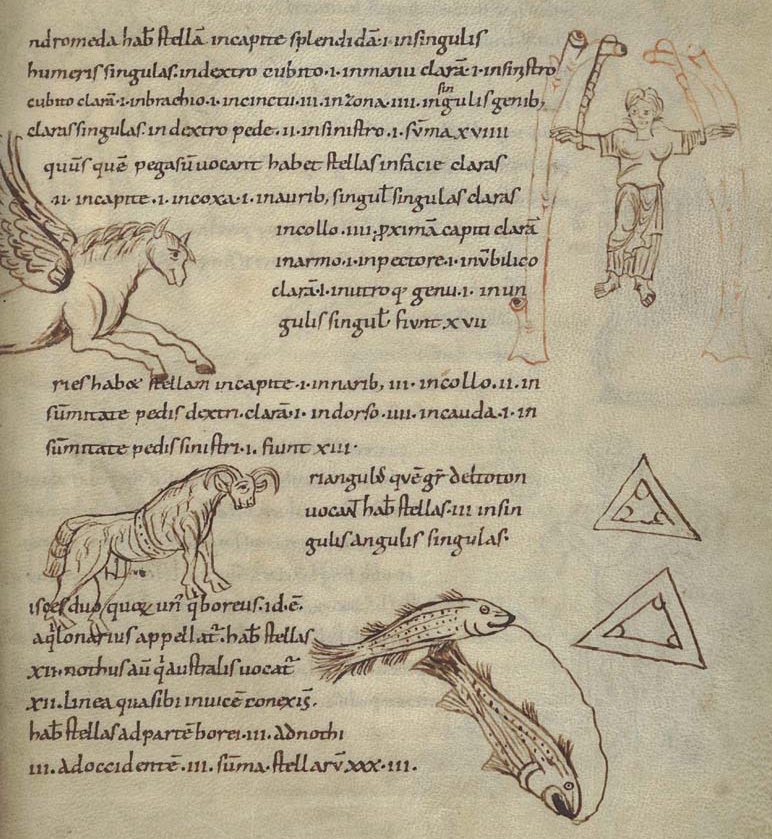 ndromeda hab̄ stellā incapite splendidā·i· insingulis
humeris singulas·indextro cubito·i·inmanu clarā·i·insinistro
cubito clarā·i·inbrachio·i·incinctu·iii·inzona·iiii·insingulis genib;
claras singulas·in dextro pede·ii·insinistro·i·sūma xviiii
quūs quē pegasū uocant habet stellas infacie claras
ii·incapite·i·incoxa·i·inaurib; singul̄ singulas claras
incollo·iiii·ꝓximā capiti clarā
inarmo·i·inpectore·i·inūbilico
clarā·i·inutroq; genu·i·inun
gulis singul̄ fiunt xvii
ries habet stellam incapite·i·innarib; iii·incollo·ii·in
sūmitate pedis dextri·clarā·i·indorso·iiii·incauda·i·in
sūmitate pedis sinistri·i·fiunt xiii·
riangulū quē gr̄ deltoton
uocant hab̄ stellas·iii·insin
gulis angulis singulas·
isces duo quoꝝ un̄ q̄ boreus·id·ē·
aq̇lonarius appellat̄·hab̄ stellas
xii·nothus aū q̇ australis uocat̄
xii·linea quasibi inuicē conexis̄·
hab̄ stellas ad partē borei·iii·ad nothi
iii·ad occidentē·iii·sūma·stellarū xxx·iii·